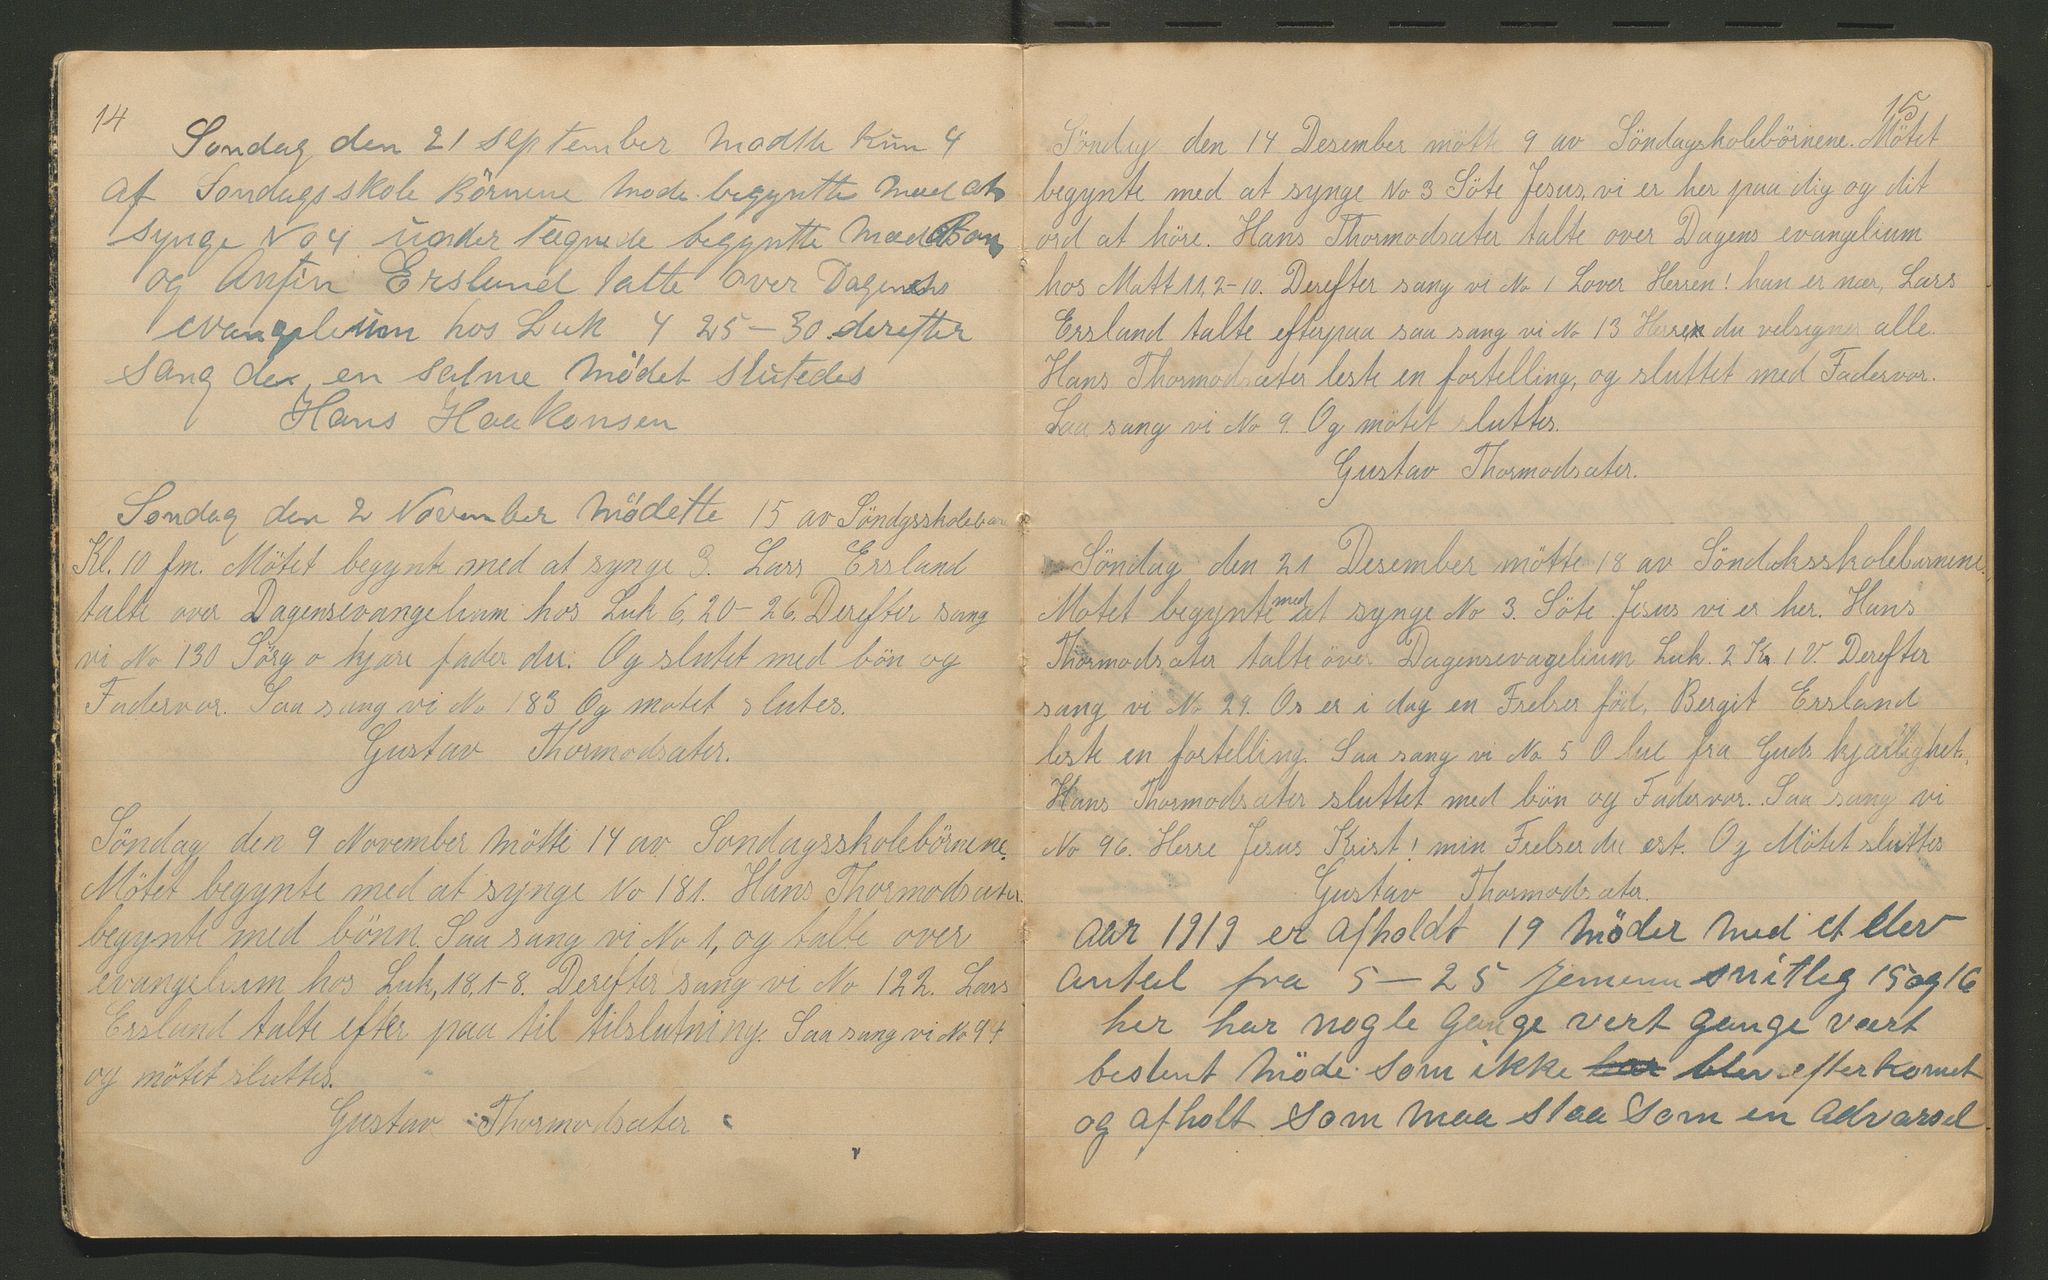 14
Søndag den 21 september mødte kun 4
af Søndagsskole Børnene møde begyntte med at
synge No 4 under tegnede begyntte med Bøn
og Anfin Ersland talte over Dagens
evangelium hos Luk 4 25-30. derefter
sang der en salme Mødet slutedes
Hans Haakonsen
Søndag den 2 November Mødette 15 av Söndgsskolebar
Kl. 10 fm. Mötet begynte med at synge 3. Lars Ersland
talte over Dagensevangelium hos Luk 6, 20-26. Derefter sang
vi No 130 Sörg o kjære fader du. Og slutet med bön og
Fadervor. Saa sang vi No 183 Og motet slutes.
Gustav Thormodsæter.
Söndag den 9 November mötte 14 av Sondagsskolebörnene.
Mötet begynte med at synge No 181. Hans Thormodsæter
begynte med bönn. Saa sang vi No 1, og talte over
evangelium hos Luk, 18,1-8. Derefter sang vi No 122. Lars
Ersland talte efter paa til tilslutning. Saa sang vi No 94
og mötet sluttes.
Gustav Thormodsæter
15
Söndag den 14 Desember mötte 9 av Söndagskolebörnene. Mötet
begynte med at synge No 3 Söte Jesus, vi er her paa dig og dit
ord at höre. Hans Thormodsæter talte over Dagens evangelium
hos Matt 11,2-10. Derefter sang vi No 1 Lover Herren! han er nær, Lars
Ersland talte efterpaa saa sang vi No 13 Herren du velsigner alle.
Hans Thormodsæter leste en fortelling, og sluttet med Fadervor.
Saa sang vi No 9. Og mötet sluttes.
Gustav Thormodsæter.
Söndag den 21 Desember mötte 18 av Söndaksskolebarnene.
Motet begynte med at synge No 3. Söte Jesus vi er her. Hans
Thormodsæter talte över Dagensevagelium Luk. 2 K. 1 V. Derefter
sang vi No 29. Os er i dag en Frelser föd, Bergit Ersland
leste en fortelling. Saa sang vi No 5 O lue fra Guds kjærlighet.
Hans Thormodsæter sluttet med bön og Fadervor. Saa sang vi
No 96. Herre Jesus Krist! min Frelser du est. Og Mötet sluttes
Gustav Thormodsæter.
aar 1919 er afholdt 19 møder med et elev
antal fra 5-25 jemenu snitlig 15 og 16
her har nogle Gange vert gange vært
bestent Møde som ikke har blev efterkomet
og afholt som maa staa som en advarsel